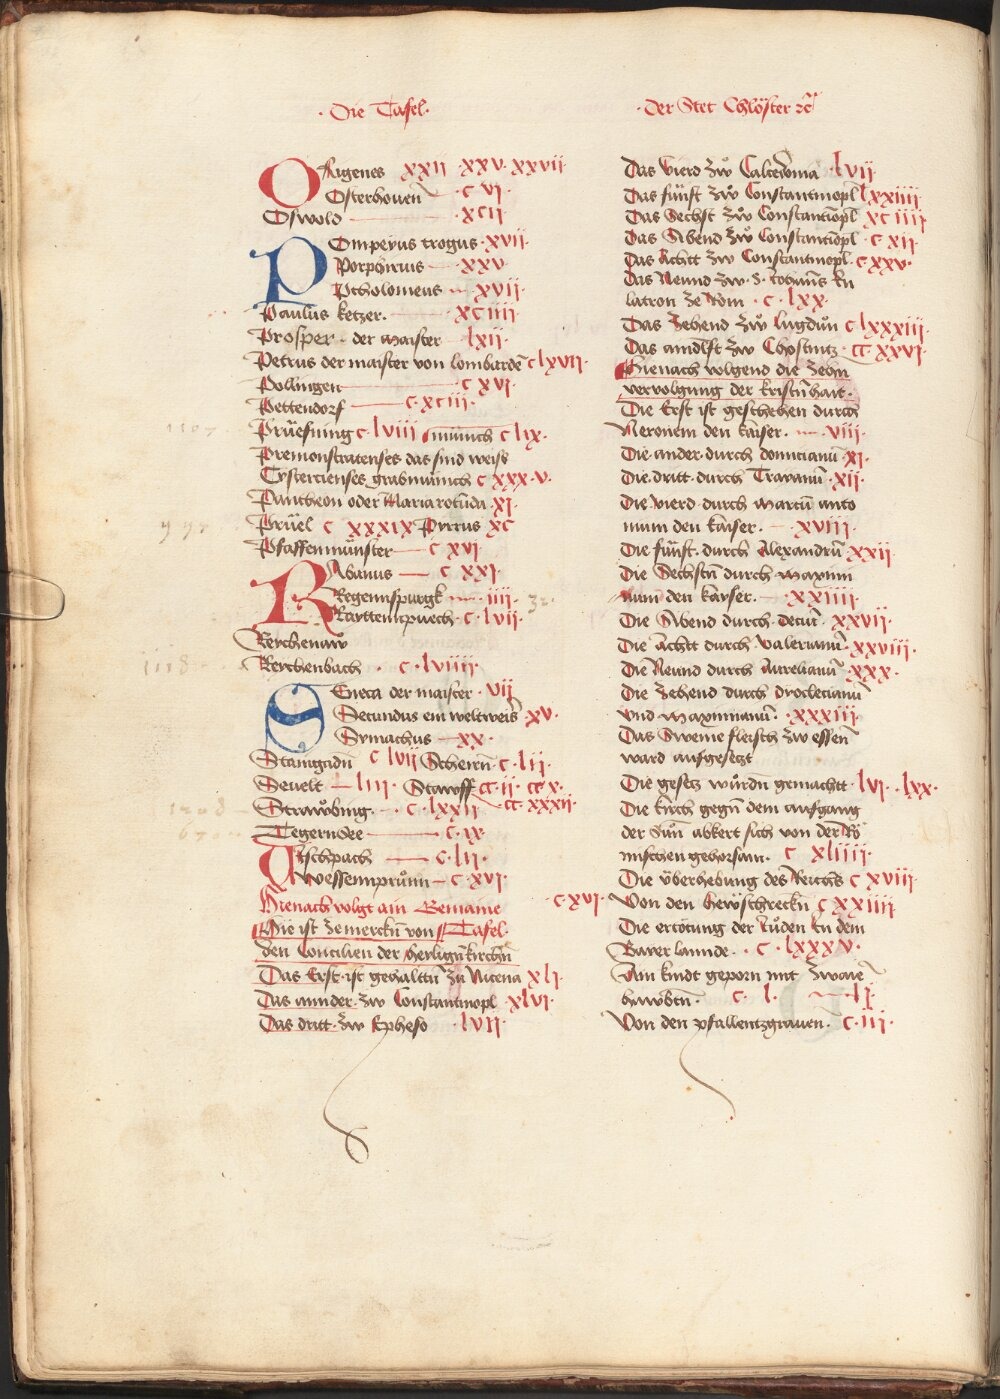 · Die Tafel ·
· Der Stet Chlöster zc
ORigenes xxii · xxv · xxvii
Osterhouen · c vi ·
Oswold · xcii ·
POmpeyus trogus · xvii ·
Porphirius xxv ·
Ptholomeus xvii ·
Paulus ketzer · xciiii ·
Prosper · der maister lxii ·
Petrus der maister von lombardē c lxvii ·
Pollingen c xvi ·
Pettendorf c · xciii ·
Prüefning c · lviii münich c lix ·
Premonstratenses das sind weiss
Cystercienses grabmünich c xxx · v ·
Pantheon oder Maria rotūda · xi ·
Prüel c xxxix Pyrrus xc
Pfaffenmünster c xvi
RAbanus c xxi ·
Regennspurgk iiii ·
Rayttenpuech · c · lvii ·
Reychenaw
Reychenbach · c · lviiii
SEneca der maister · vii
Secundus ein weltweiß · xv ·
Symachus xx ·
Staingadn̄ c lvii Scheirn̄ c · lii ·
Seuelt liii · Stawff cc · ii · cc x ·
Strawbing · c · lxxii cc · xxxii ·
Tegernsee c · ix ·
Vschpach c · lii ·
Wessennprünn c · xvi ·
Hienach volgt ain Gemaine c · xvi ·
Tafel ·
Hie ist zemerckn̄ von
den Concilien der heilign̄ kirchn̄
Das Erst · ist gehaltn̄ zu Nicena xli ·
Das annder · zw Constantinopl · xlvi ·
Das dritt · zw Epheso · lvii ·
Das vierd zw Calcedonia · lvii ·
Das fünft zw Constantinopl lxxiiii ·
Das Sechst zw Constantiopl xciiii ·
Das Sibend zw Constantiopl · c xii ·
Das Achtt zw Constantinopl · c xxv ·
Das Neund zw · S · Johanns in
latron ze Rom · c · lxx ·
Das Zehend zw lugdun c lxxxiii ·
Das aindlft zw Chostnitz · cc xxvi ·
Hienach volgend die zehn
vervolgung der kristn̄hait ·
Die Erst ist geschehen durch
Neronem den kaiser · viii ·
Die ander · durch domicianū · xi ·
Die dritt · durch Trayanū · xii ·
Die vierd · durch marcū anto
ninum den kaiser · xviii ·
Die fünft · durch Alexandrū xxii ·
Die Sechstn̄ durch maximi
num den kayser · xxiiii ·
Die Sibend durch · deciū · xxvii ·
Die Achtt durch valerianū · xxviii ·
Die Neund durch Aurelianū xxx ·
Die Zehend durch dyoclecianū
vnd maximianū · xxxiii ·
Das Sweine fleisch zw essen̄
ward aufgesetzt
Die gesetz wurdn̄ gemachtt · lvi · lxx ·
Die kirch gegn̄ dem aufgang
der Sun̄ abkert sich von der Rö
mischen gehorsam · c xliiii ·
Die überhebung des Reichs c xviii ·
Von den hewschreckn̄ c xxiiii ·
Die ertötung der Juden in dem
Bayer lannde · c · lxxxv ·
Ain kindt geporn mit zwaiē
hawbtn̄ · c · l · li ·
Von den pfallentzgrauen · c · iii ·